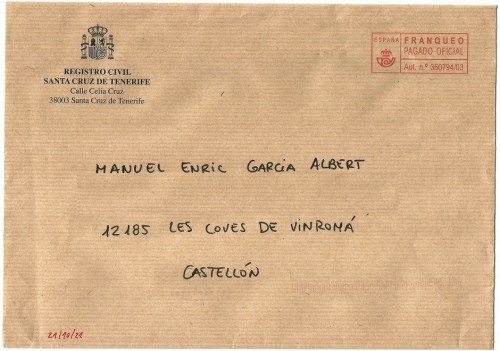 REGISTRO CIVIL
SANTA CRUZ DE TENERIFE
Calle Celia Cruz
38003 Santa Cruz de Tenerife
ESPAÑA
FRANQUEO
PAGADO OFICIAL
Aut. n.º 380794/03
MANUEL ENRIC GARCIA ALBERT
12185 LES COVES DE VINROMÁ
CASTELLÓN
21/10/21